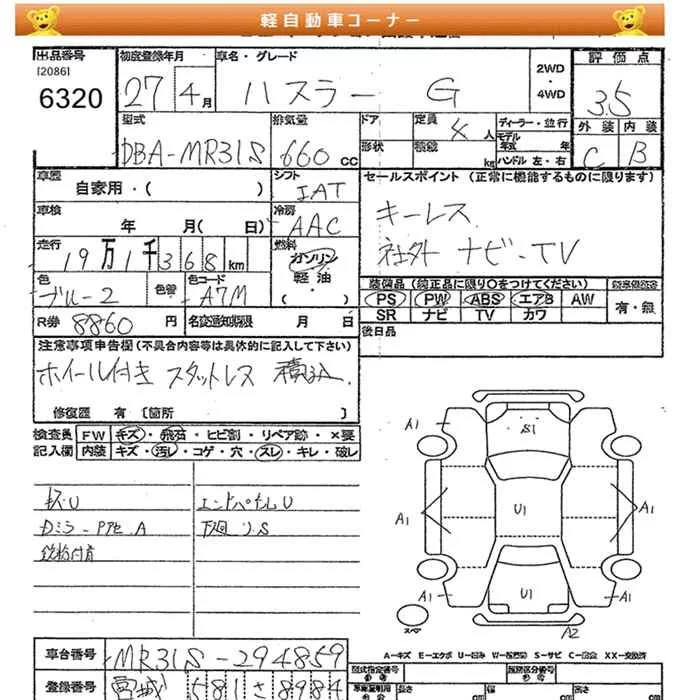 軽自動車コーナー
出品番号 初度登録年月 車名・グレード 評価点
[2086]
6320 27年 4月 ハスラー G 2WD・4WD 3.5
型式 排気量 ドア 定員 ディーラー・並行 外装 内装
DBA-MR31S 660cc 形状 積載 4人 kg モデル年式 年 ハンドル 左・右 C B
車歴 自家用・( ) シフト IAT セールスポイント (正常に機能するものに限ります)
車検 年 月( 日) 冷房 AAC キーレス
走行 19万1千368km 燃料 ガソリン 軽油・( ) 社外 ナビ・TV
色 ブルー2 色替 色コード A7M 装備品(純正品に限り○をつけてください)
PS PW ABS エアB AW 有・無
R券 8860円 名変通知期限 月 日 SR ナビ TV カワ
後日品
注意事項申告欄(不具合内容等は具体的に記入して下さい)
ホイール付き スタットレス 積込
修復歴 有 [箇所 ]
検査員 FW キズ・飛石・ヒビ割・リペア跡・×要
記入欄 内装 キズ・汚レ・コゲ・穴・スレ・キレ・破レ
エンドパネルU
Dミラー A 下廻りS
A1 S1 A1
A1 U1 A1
A1 U1 A1
スペア A2
A-キズ E-エクボ U-凹み S-サビ XX-交換済
車台番号 MR31S-294859
登録番号 宮城 581 さ 8984
長さ cm 幅 cm 高さ cm